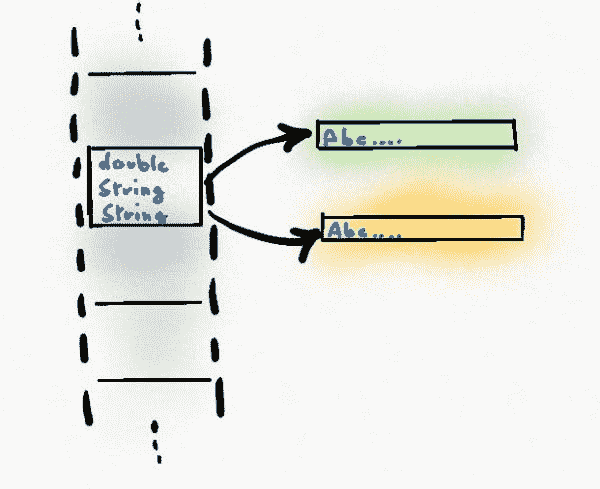 double
String
String
Abc....
Abc....